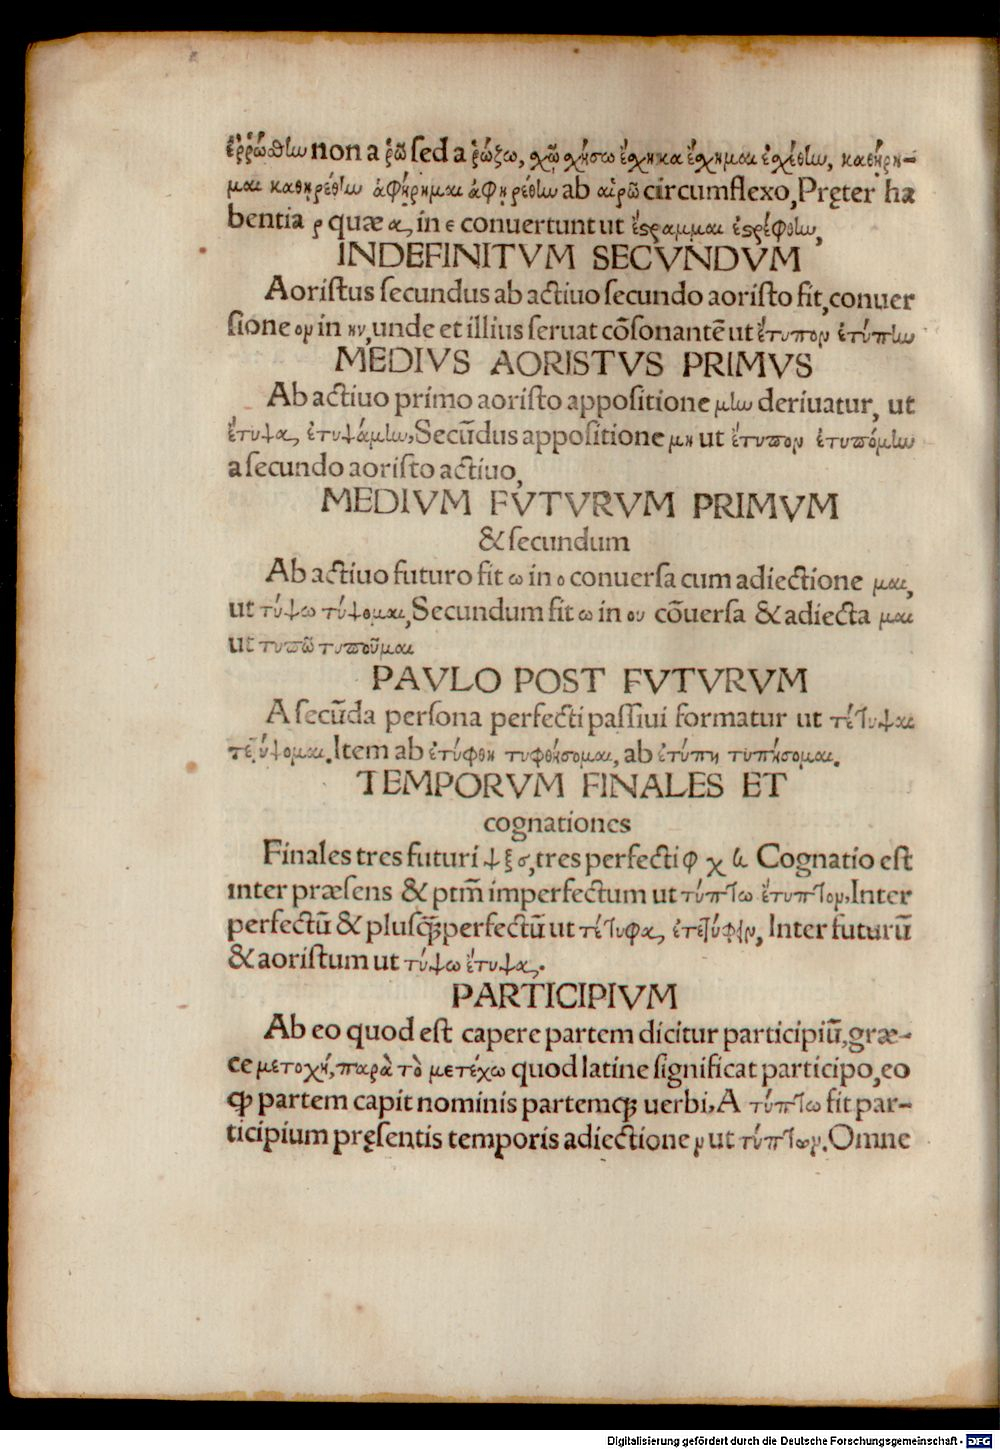 ἐῤῥώσθην non a ῥῶ sed a ῥώζω, χῶ χήσω ἔσχηκα ἔσχημαι ἐσχέθην, καθῄρη-
μαι καθῃρέθην ἀφῄρημαι ἀφῃρέθην ab αἱρῶ circumflexo, Pręter ha
bentia ρ quæ α, in ε conuertunt ut ἔςραμμαι ἐςρέφθην,
INDEFINITVM SECVNDVM
Aoristus secundus ab actiuo secundo aoristo fit, conuer
sione ον in ην, unde et illius seruat cõsonantẽ ut ἔτυπον ἐτύπην
MEDIVS AORISTVS PRIMVS
Ab actiuo primo aoristo appositione μην deriuatur, ut
ἔτυψα, ἐτυψάμην, Secũdus appositione μη ut ἔτυπον ἐτυπόμην
a secundo aoristo actiuo,
MEDIVM FVTVRVM PRIMVM
& secundum
Ab actiuo futuro fit ω in ο conuersa cum adiectione μαι,
ut τύψω τύψομαι, Secundum fit ω in ου cõuersa & adiecta μαι
ut τυπῶ τυποῦμαι
PAVLO POST FVTVRVM
A secũda persona perfecti passiui formatur ut τέτυψαι
τετύψομαι. Item ab ἐτύφθη τυφθήσομαι, ab ἐτύπη τυπήσομαι.
TEMPORVM FINALES ET
cognationes
Finales tres futuri ψ ξ σ, tres perfecti φ χ κ Cognatio est
inter præsens & ptm̃ imperfectum ut τύπτω ἔτυπτον, Inter
perfectũ & plusꝙ̃perfectũ ut τέτυφα, ἐτετύφειν, Inter futurũ
& aoristum ut τύψω ἔτυψα.
PARTICIPIVM
Ab eo quod est capere partem dicitur participiũ, græ-
ce μετοχή, παρὰ τὸ μετέχω quod latine significat participo, eo
ꝙ partem capit nominis partemqꝫ uerbi, A τύπτω fit par-
ticipium pręsentis temporis adiectione ν ut τύπτων. Omne
Digitalisierung gefördert durch die Deutsche Forschungsgemeinschaft - DFG